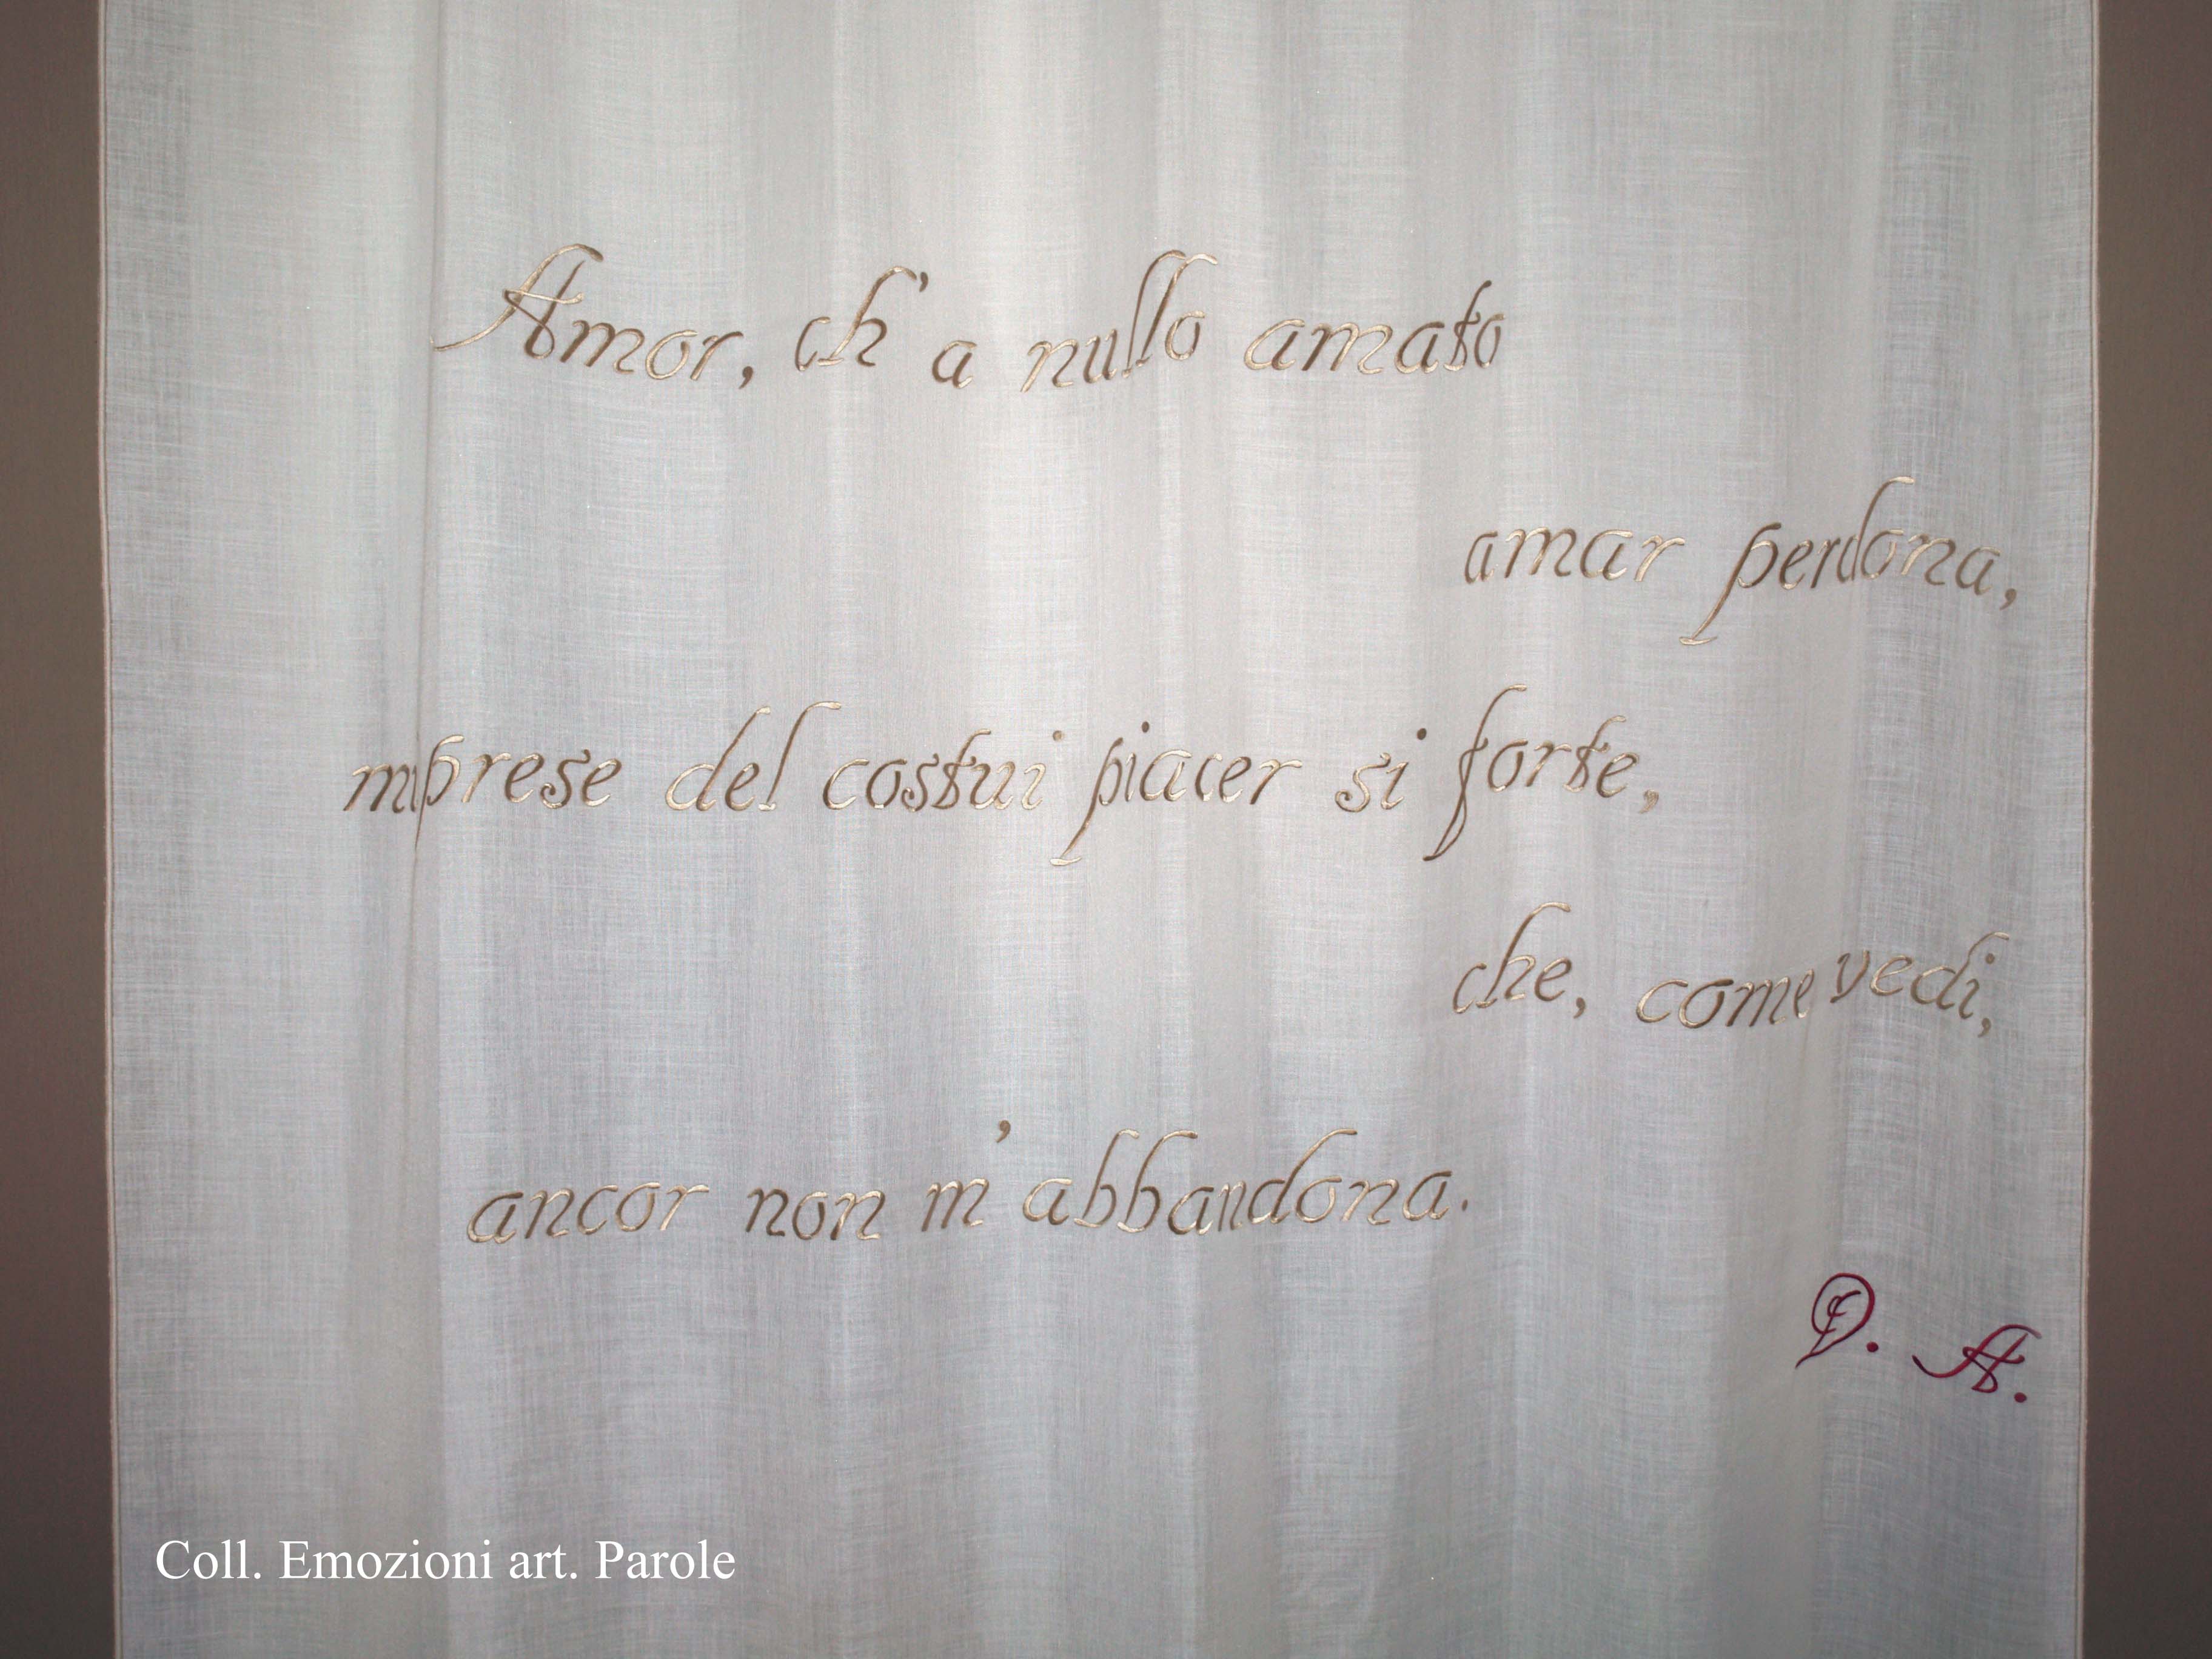 Amor, ch' a nullo amato
amar perdona,
mi prese del costui piacer si forte,
che, come vedi,
ancor non m' abbandona.
D. A.
Coll. Emozioni art. Parole